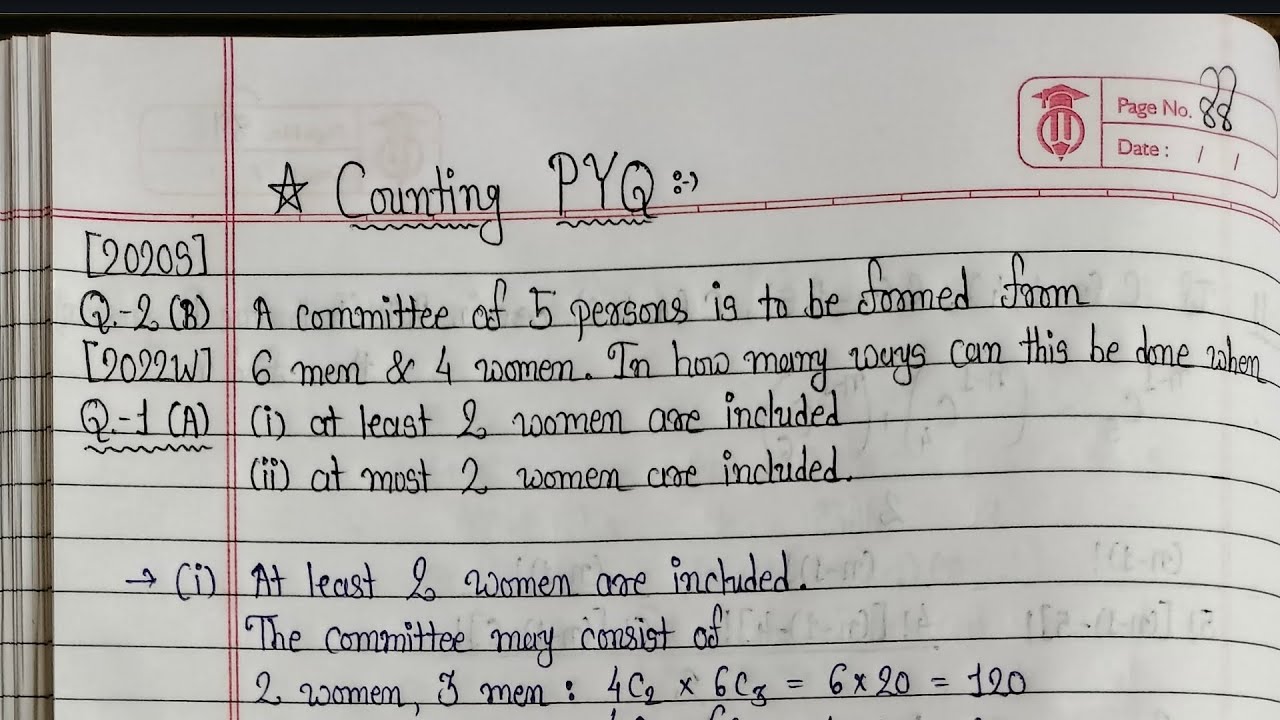 Page No. 88
Date: / /
☆ Counting PYQ :-)
[2020S]
Q.-2 (B) A committee of 5 persons is to be formed from
[2022W] 6 men & 4 women. In how many ways can this be done when
Q.-1 (A) (i) at least 2 women are included
(ii) at most 2 women are included.
→ (i) At least 2 women are included.
The committee may consist of
2 women, 3 men : 4C₂ × 6C₃ = 6 × 20 = 120